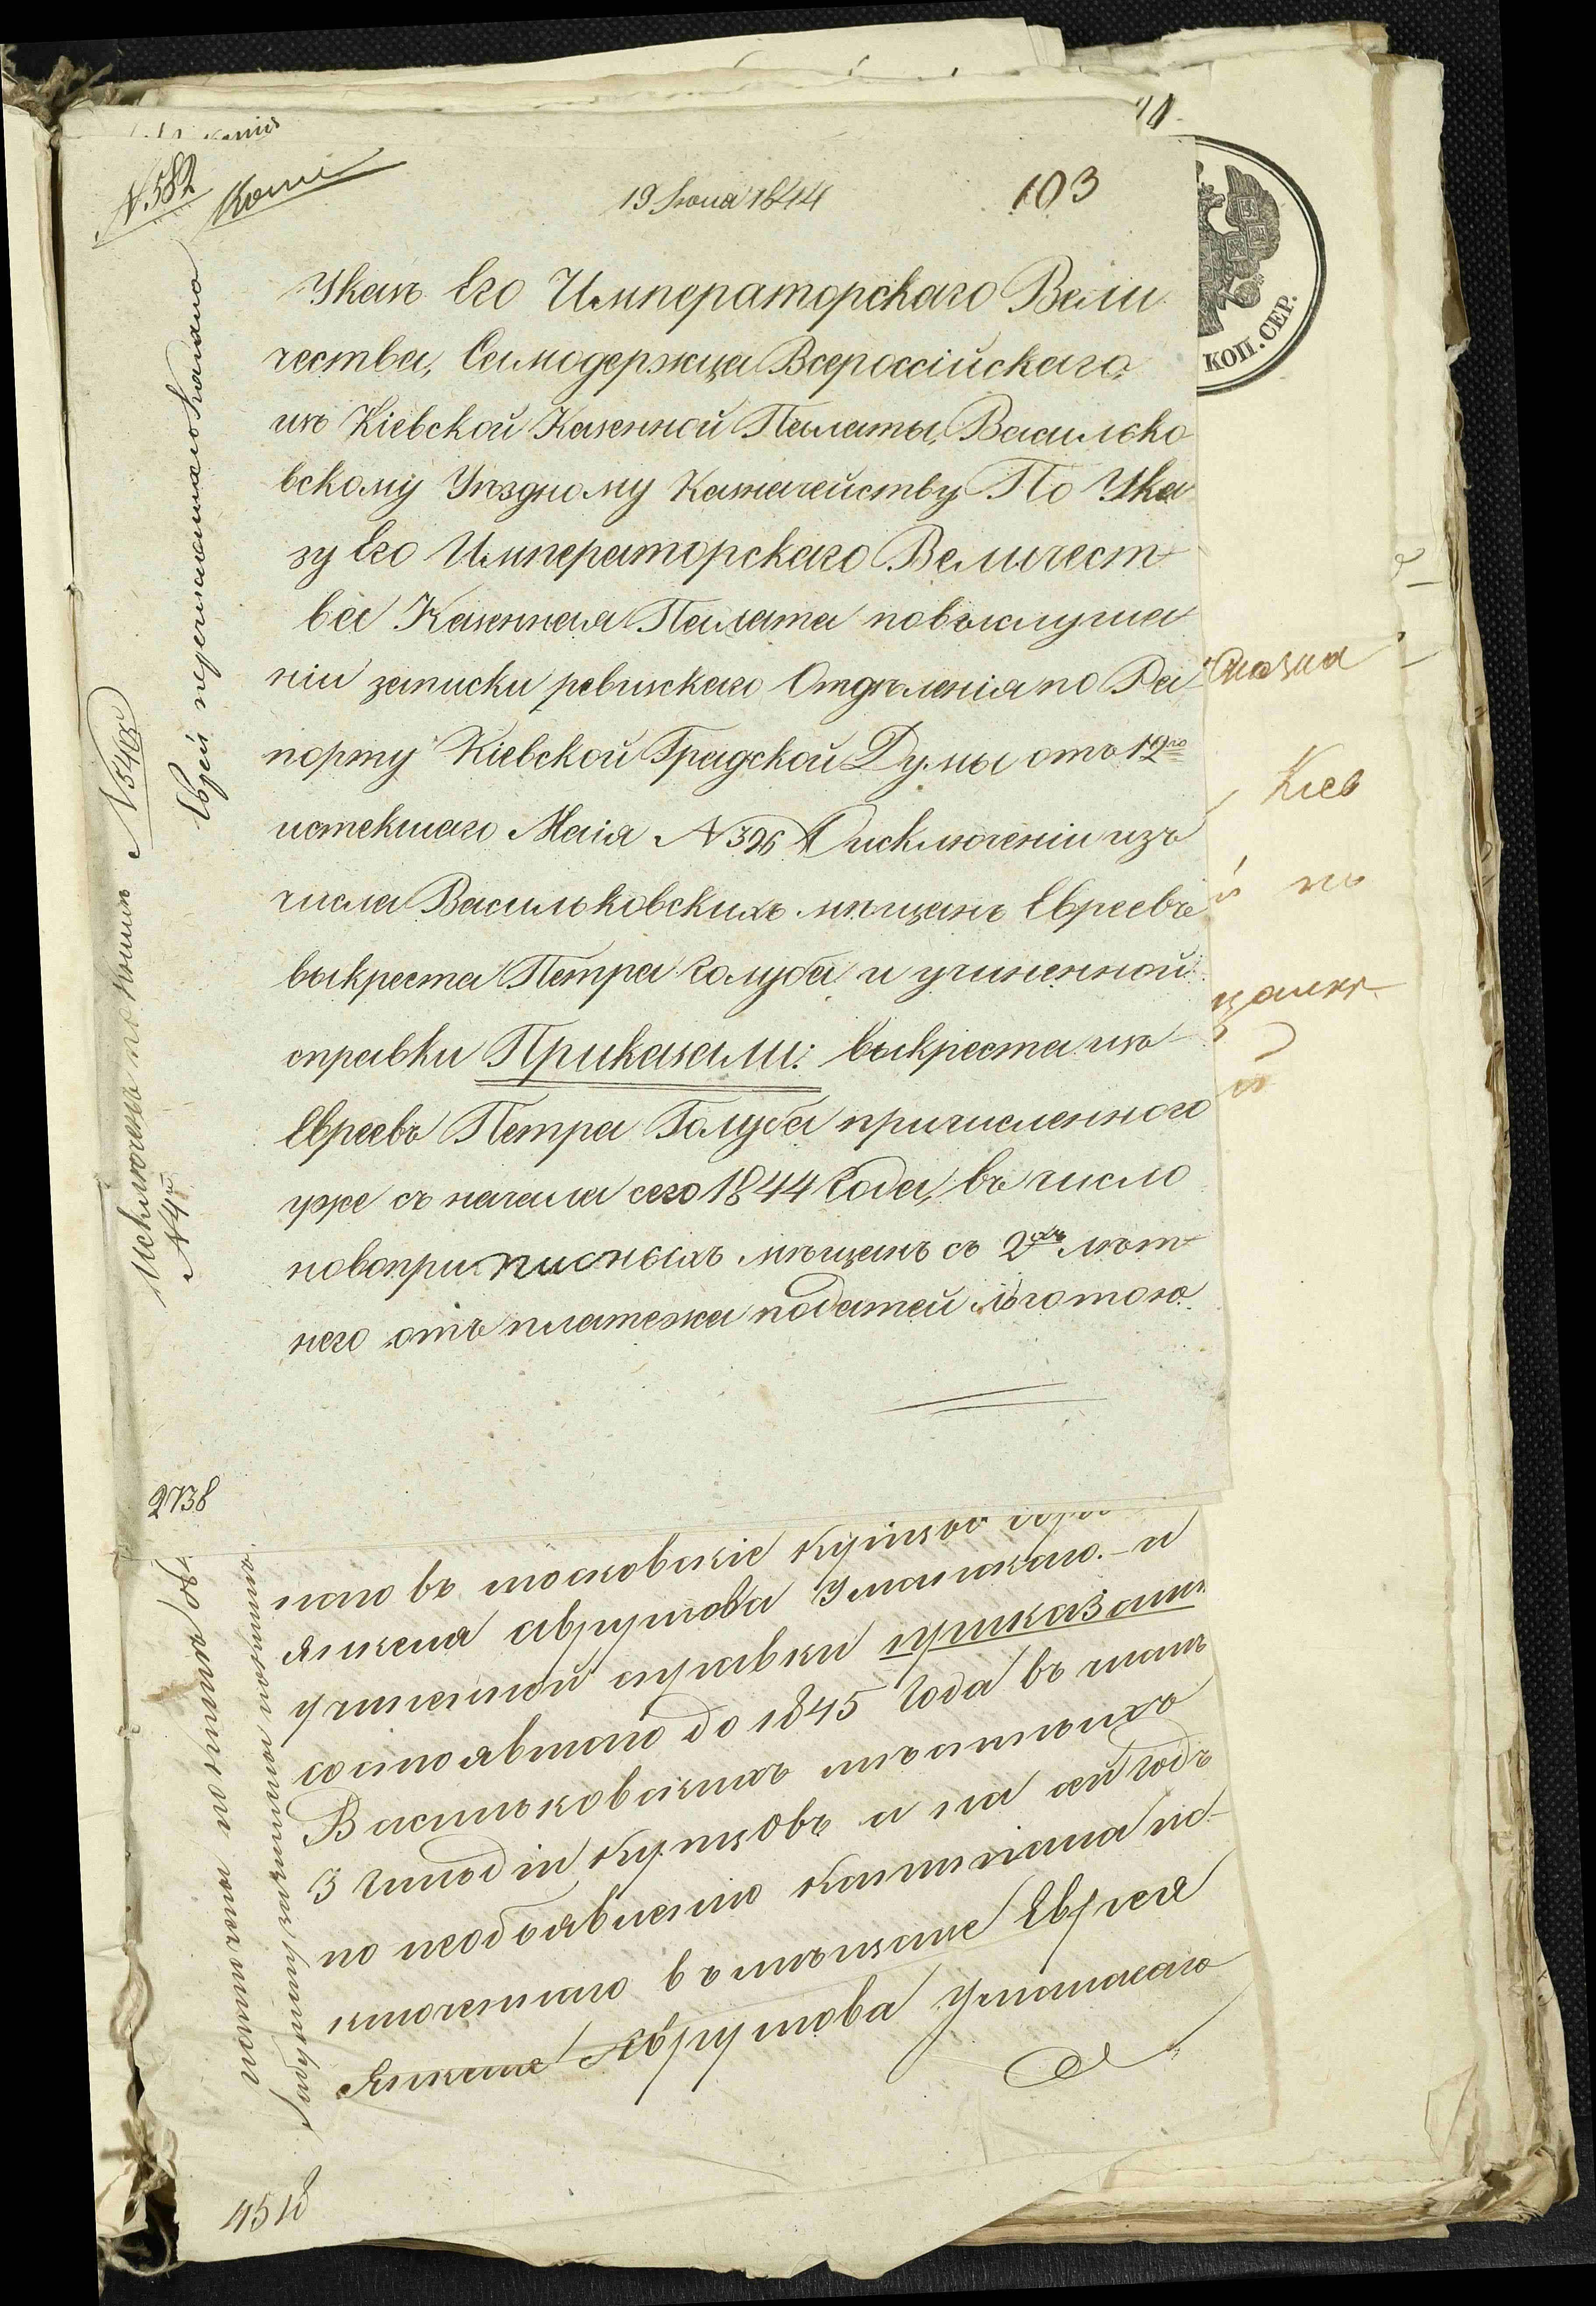 N. 582
Копія
19 Іюня 1844
103
Указъ Его Императорскаго Вели
чества, Самодержца Всероссійскаго,
изъ Кіевской Казенной Палаты, Василько
вскому Уѣздному Казначейству По Ука
зу Его Императорскаго Величест
ва Казенная Палата по выслуша
ніи записки ревизскаго Отдѣленія по Ра
порту Кіевской Градской Думы отъ 12го
истекшаго Маія N 396 О исключеніи изъ
числа Васильковскихъ мѣщанъ Евреевъ
выкреста Петра Голуба и учиненной
справки Приказали: выкреста изъ
Евреевъ Петра Голуба причисленного
уже съ начала сего 1844 Года, въ число
новоприписныхъ мѣщанъ съ 2хъ лѣт
него отъ платежа податей Льготою
2738
Исключенъ по книгѣ
N 4й
N 540
КОП. СЕР.
Кіев
наго въ московскіе купцы
учиненной справки приказали
состоявшаго до 1845 Года въ числѣ
Васильковскихъ мѣстныхъ
3 Гильдіи Купцовъ а на сей годъ
по необъявленію Капитала
ключеннаго въ мѣщане Еврея
Аврумова Уманскаго
4518